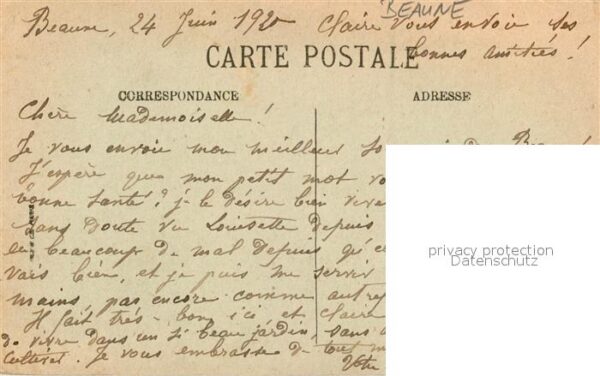 BEAUNE
Beaune, 24 Juin 1920 Claire vous envoie ses
bonnes amitiés !
CARTE POSTALE
CORRESPONDANCE
ADRESSE
Chère Mademoiselle !
Je vous envoie mon meilleur de
J'espère que mon petit mot
bonne santé ? je le désire bien
sans doute vu Louisette depuis
eu beaucoup de mal depuis
vais bien, et je puis me servir
mains, pas encore comme
Il fait très-bon ici et Claire
de vivre dans un si beau jardin, sans
cultiver. je vous embrasse de tout
Votre
privacy protection
Datenschutz